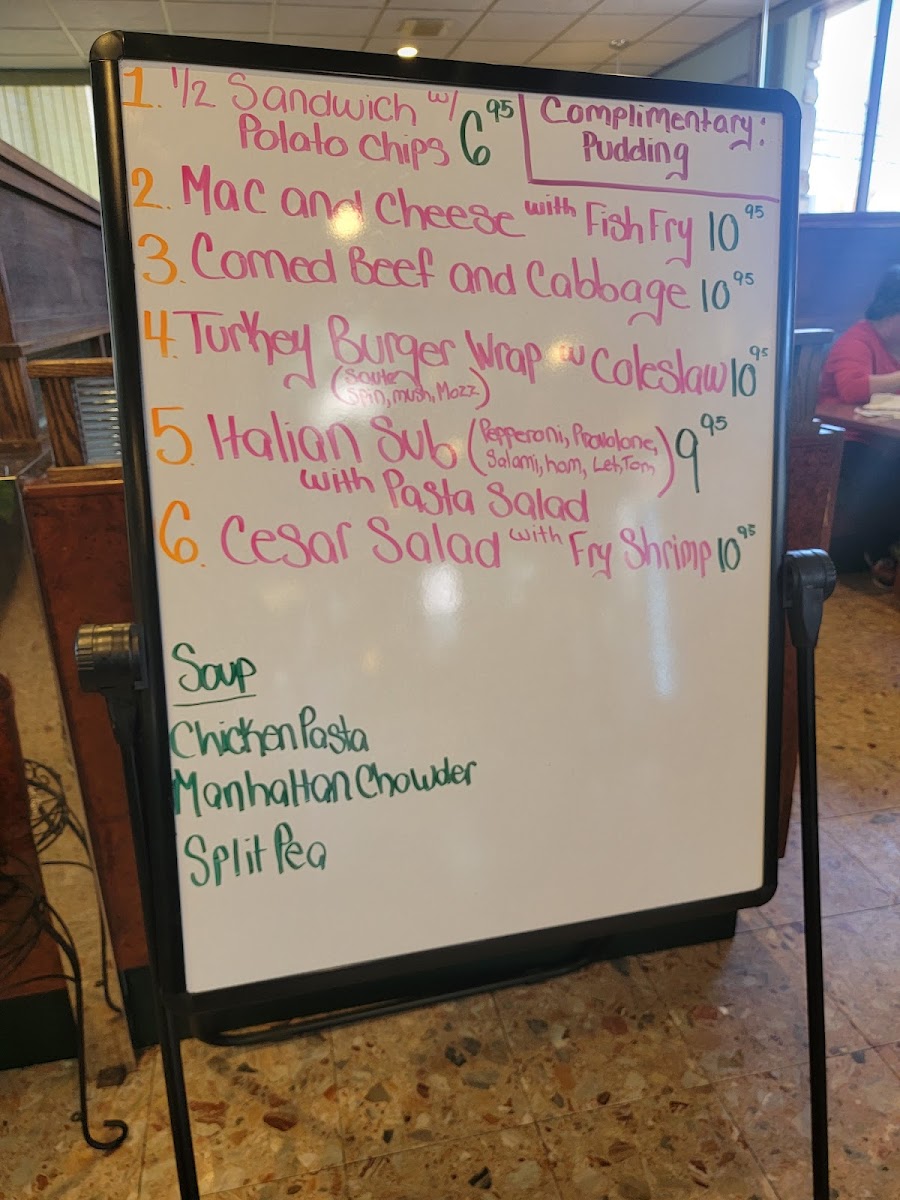 1. 1/2 Sandwich w/ 6 95
Polato Chips
Complimentary:
Pudding
2. Mac and Cheese with Fish Fry 10 95
3. Corned Beef and Cabbage 10 95
4. Turkey Burger Wrap w Coleslaw 10 95
(Saute
Spin, mush, Mozz)
5. Italian Sub (Pepperoni, Provolone, 9 95
Salami, ham, Let, Tom)
with Pasta Salad
6. Cesar Salad with Fry Shrimp 10 95
Soup
Chicken Pasta
Manhattan Chowder
Split Pea